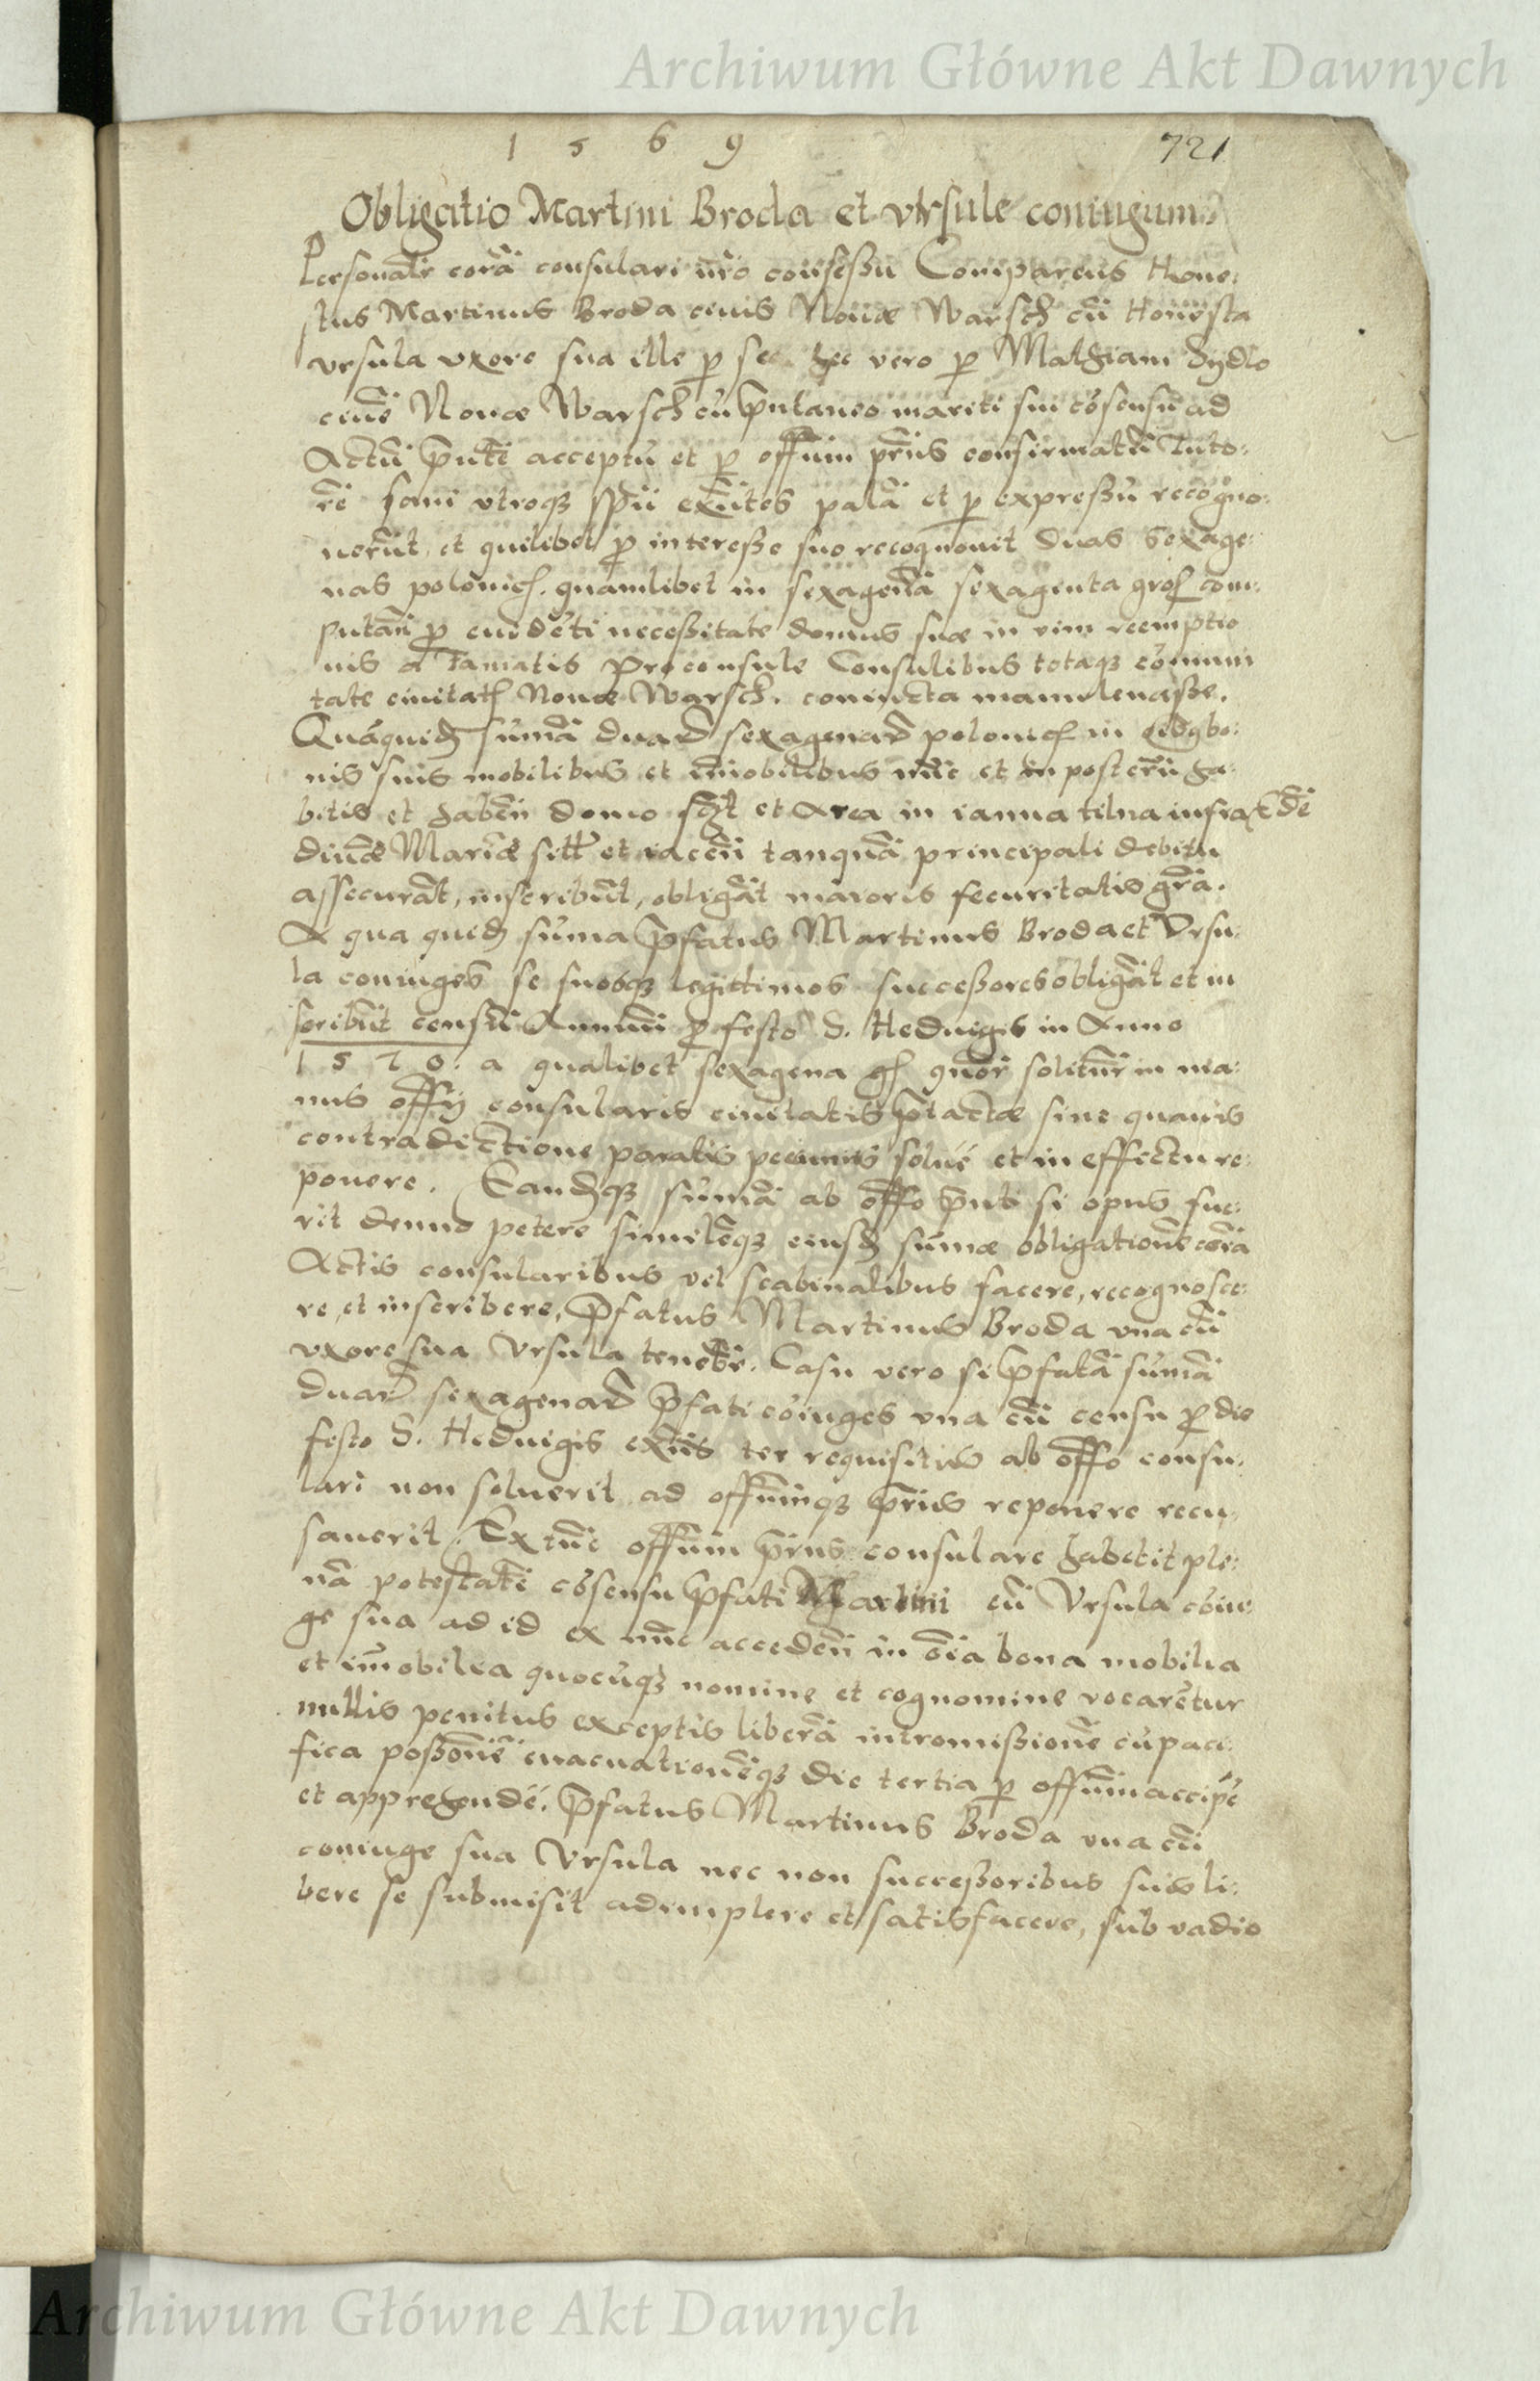 Archiwum Główne Akt Dawnych
1 5 6 9
721
Obligatio Martini Broda et Ursule coniugum
Personalr corā consulari nrō consessu Comparens Hone:
stus Martinus Broda civis Novæ Warsch cū Honesta
Ursula uxore sua ille p se hec vero p Mathiam Sydlo
civē Novæ Warsch cū spūtaneo mariti sui cōsensu ad
Actū pntē acceptū et p offīum prīus confirmatū Tuto:
rē sani utroq spū exūtes palā et p expressū recogno:
verūt et quilibet p interesse suo recognovit Duas Sexage:
nas polonich. quamlibet in sexagenā sexaginta gros com:
putan p evidēti necessitate domus suæ in vim reemptio
nis a Famatis Proconsule Consulibus totaq cōmuni
tate civitatis Novæ Warsch. coniuncta manu levasse.
Quāquid sūmā duar sexagenar polonich in oībq bo:
nis suis mobilibus et īmobilibus nūc et in posterū ha:
bitis et habēn domo scilt et Area in ianua tilna infra
divæ Mariæ sitt et iacēn tanquā principali debitu
assecurāt, inscribūt, obligāt maioris securitatis grā.
A qua quid sūma pfatus Martinus Broda et Ursu:
la coniuges se suosq legittimos successores obligāt et in
scribūt censū Annuū p festo S. Hedvigis in Anno
1 5 7 0. a qualibet sexagena quor solitur in ma:
nus offy consularis civitatis ptactæ sine quavis
contradictione paratis pecuniis solvē et in effectu re:
ponere. Eandq sūmā ab offo pnti si opus fue:
rit denuo petere similēq eiusd sūmæ obligationē corā
Actis consularibus vel scabinalibus facere, recognosce:
re, et inscribere, pfatus Martinus Broda una cū
uxore sua Ursula tenebr. Casu vero si pfatā sūmā
duar sexagenar pfati cōiuges una cū censu p die
festo S. Hedvigis exūs ter requisitus ab offo consu:
lari non solverit ad offīumq prīus reponere recu:
saverit. Ex tūc offīum prīus consulare habebit ple:
nā potestatē cōsensu pfati Martini cū Ursula cōiu:
ge sua ad id ex nūc accedēn in oīa bona mobilia
et īmobilia quocūq nomine et cognomine vocarētur
nullis penitus exceptis liberā intromissionē cū paci:
fica possonē evacuationēq die tertia p offīum accipē
et apprehendē. Pfatus Martinus Broda una cū
coniuge sua Ursula nec non successoribus suis li:
bere se submisit adimplere et satisfacere, sub vadio
Archiwum Główne Akt Dawnych